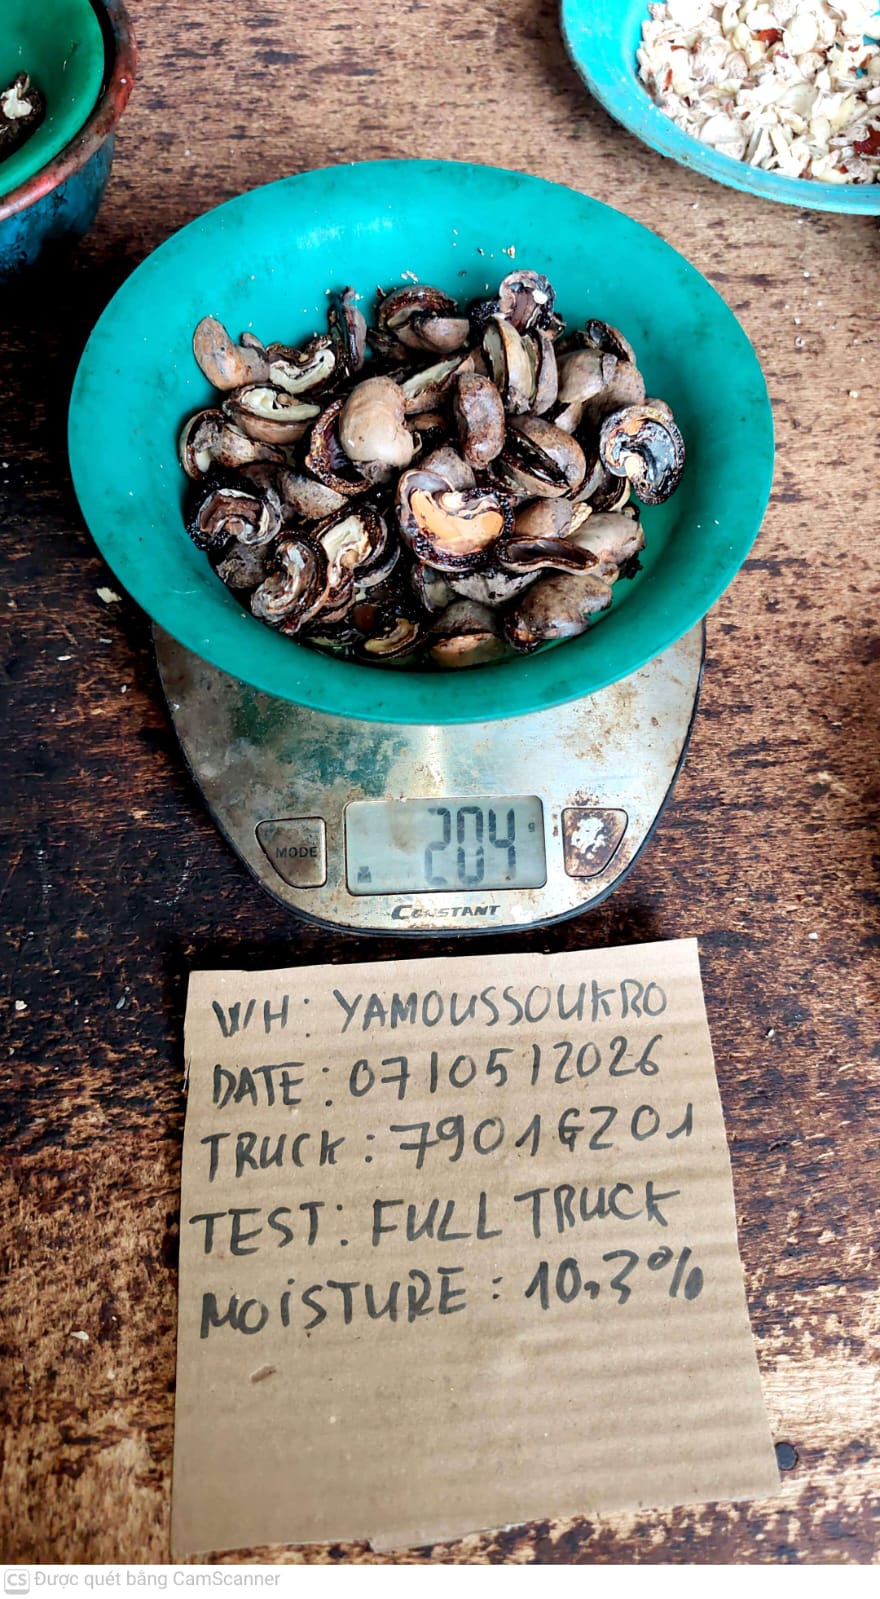 MODE
204 g
CONSTANT
W/H: YAMOUSSOUKRO
DATE: 07/05/2026
TRUCK: 7901GZ01
TEST: FULL TRUCK
MOISTURE: 10,3%
CS Được quét bằng CamScanner